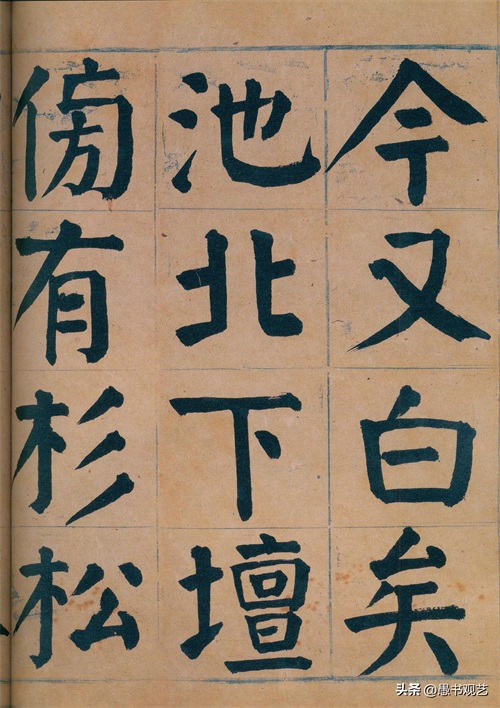 今又白矣
池北下壇
傍有杉松
头条 @愚书观艺